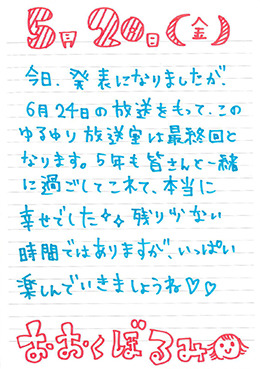 5月20日(金)
今日、発表になりましたが、
6月24日の放送をもって、この
ゆるゆり放送室は最終回と
なります。5年も皆さんと一緒
に過ごしてこれて、本当に
幸せでした✧✧残り少ない
時間ではありますが、いっぱい
楽しんでいきましょうね♡♡
おおくぼるみ